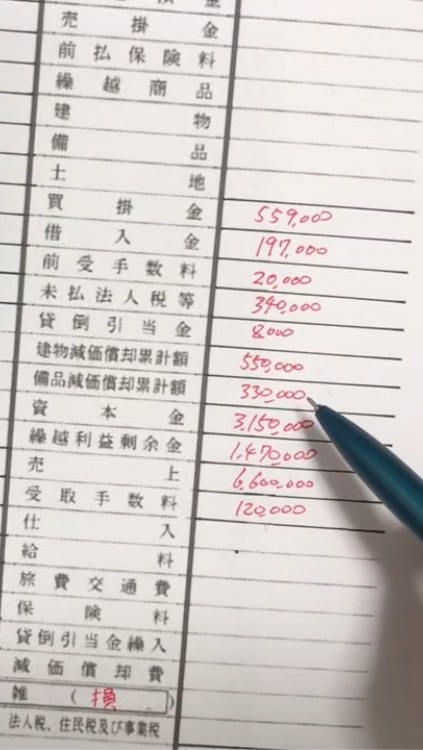 売掛金
前払保険料
繰越商品
建物
備品
土地
買掛金 559,000
借入金 197,000
前受手数料 20,000
未払法人税等 340,000
貸倒引当金 8,000
建物減価償却累計額 550,000
備品減価償却累計額 330,000
資本金 3,150,000
繰越利益剰余金 1,470,000
売上 6,600,000
受取手数料 120,000
仕入
給料
旅費交通費
保険料
貸倒引当金繰入
減価償却費
雑(損)
法人税、住民税及び事業税